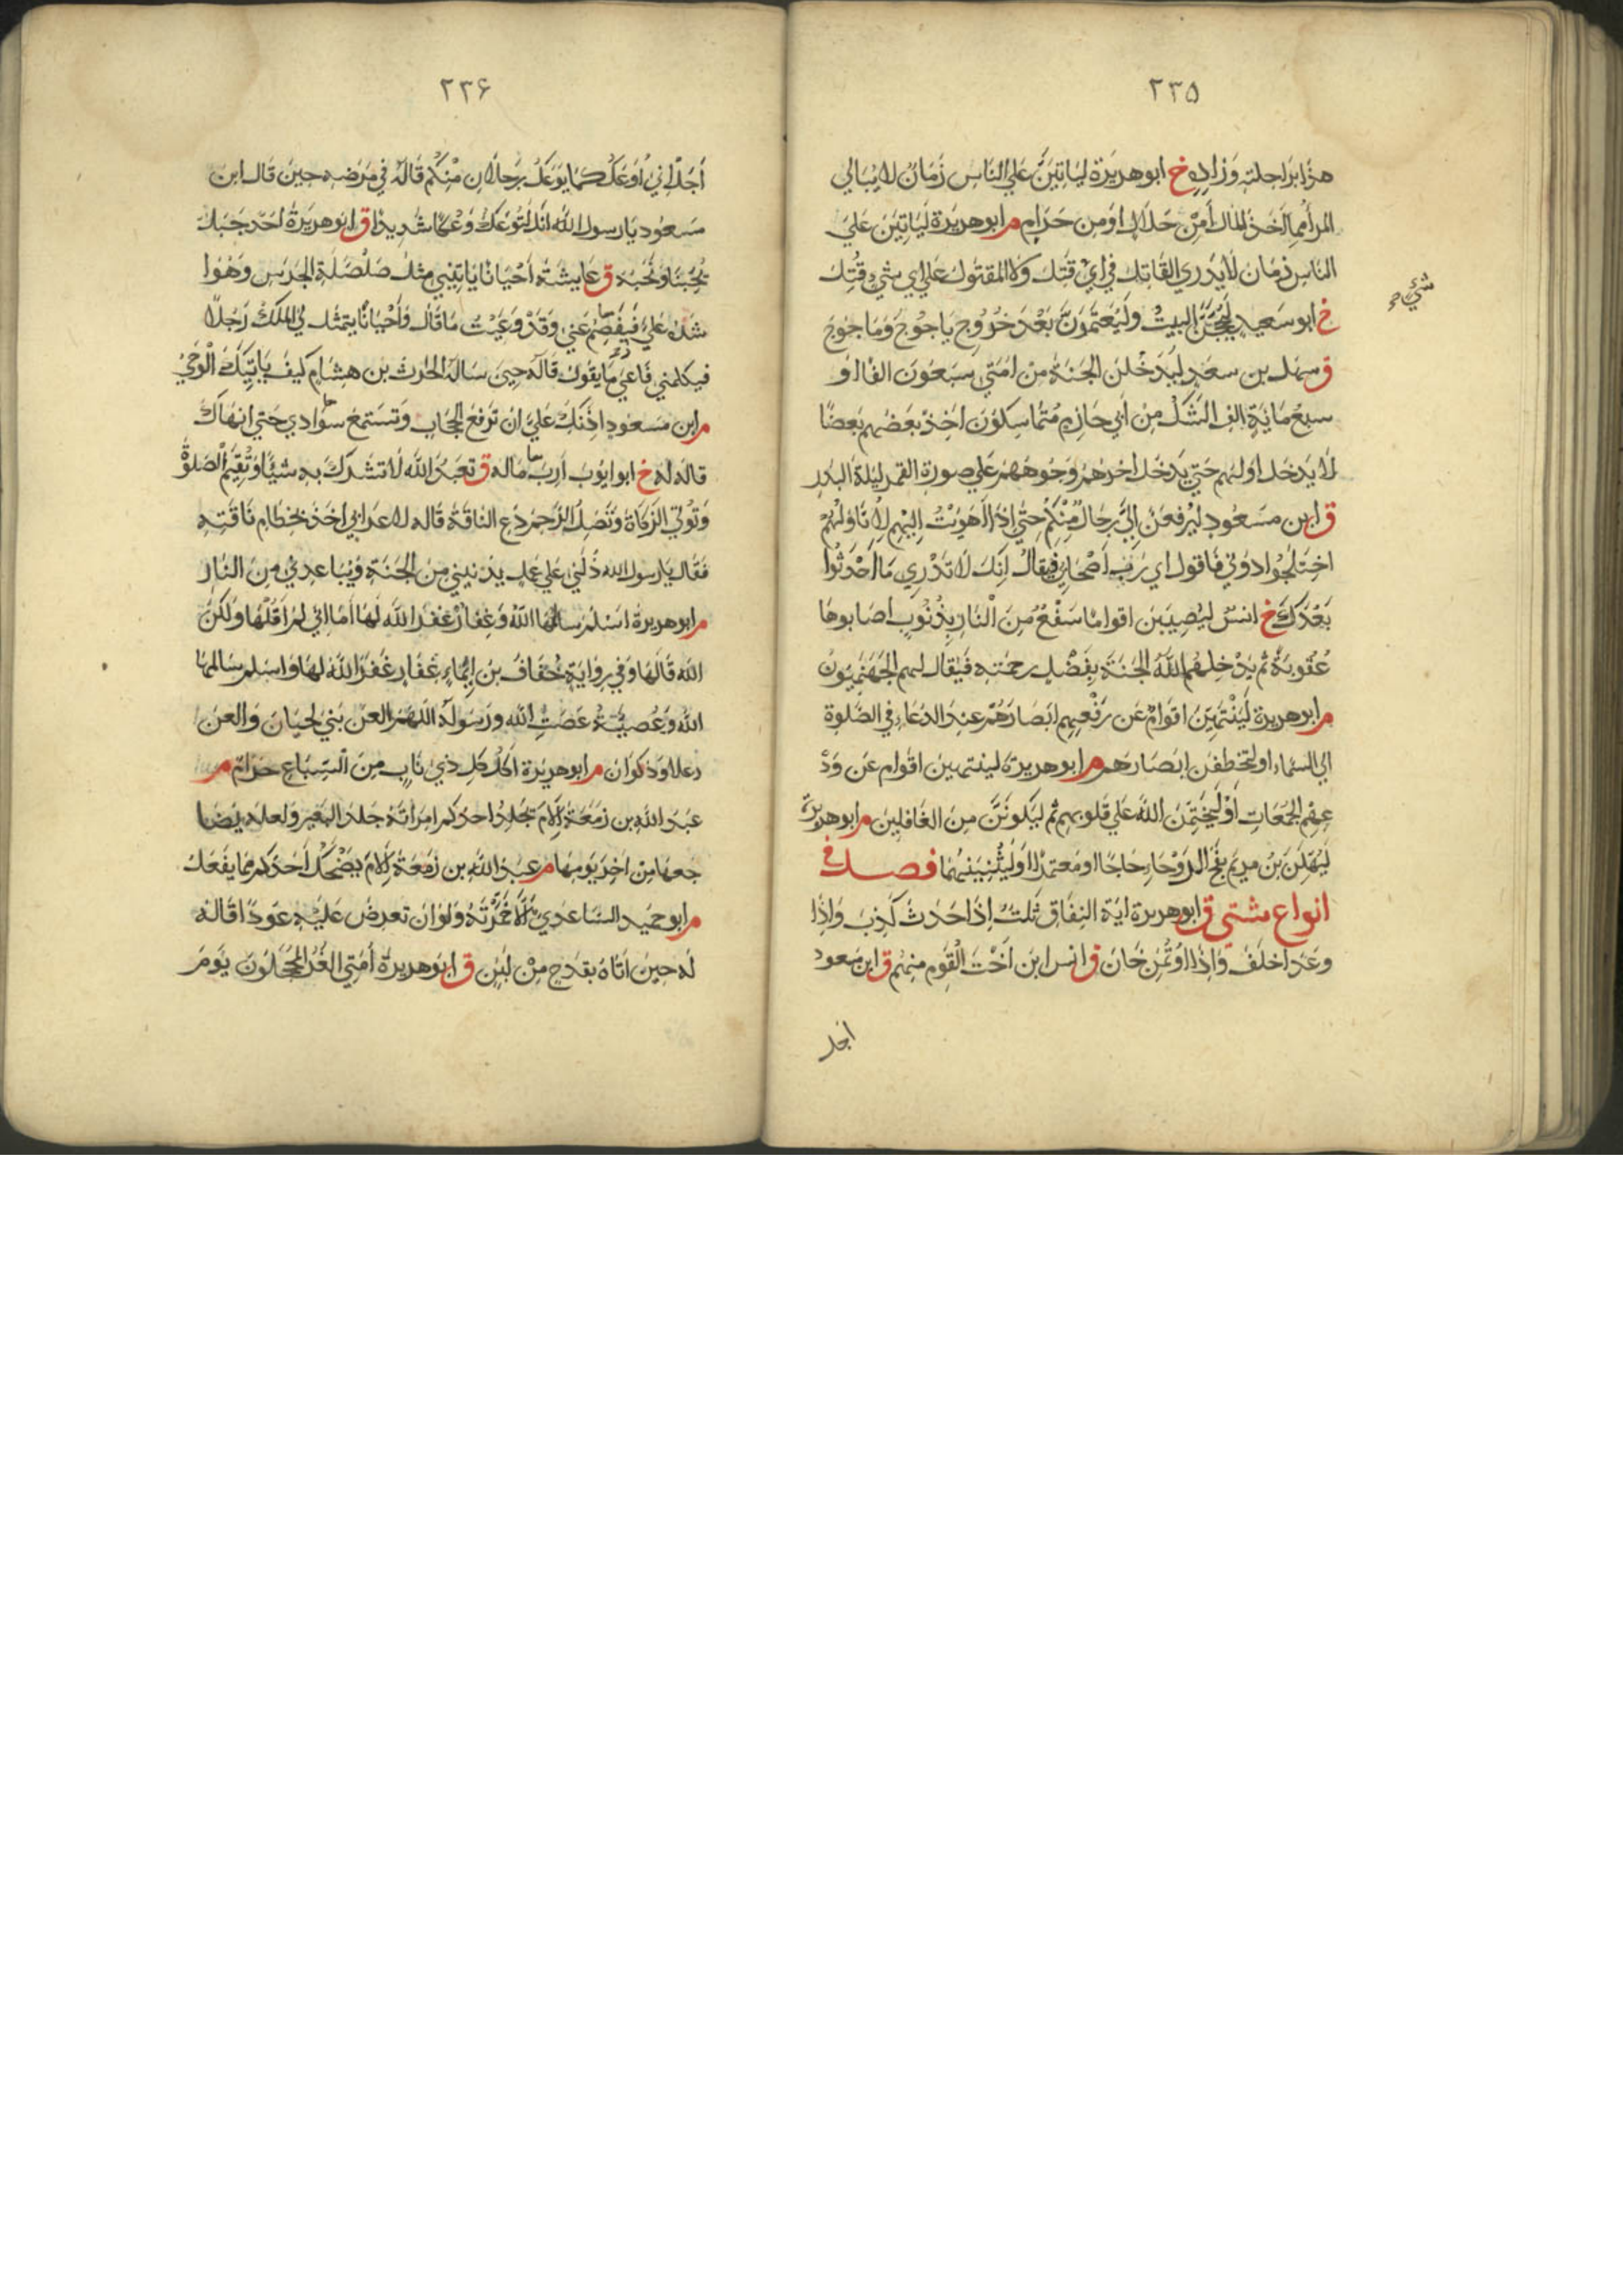 ٢٣٥
هذا براحلته وزاده خ ابو هريرة لياتين علي الناس زمان لا يبالي
المرا مما اخذ المال أمن حلال اومن حرام م ابو هريرة لياتين علي
الناس زمان لا يدري القاتل في اي قتل ولا المقتول علي اي شي قتل
شيء
خ ابو سعيد ليحجن البيت وليعتمرن بعد خروج ياجوج وماجوج
ق سهل بن سعد ليدخلن الجنة من امتي سبعون الفا او
سبع ماية الف الشك من ابي حازم متماسكون اخذ بعضهم بعضا
لا يدخل اولهم حتي يدخل اخرهم وجوههم علي صورة القمر ليلة البدر
ق ابن مسعود ليرفعن الي رجال منكم حتي اذا اهويت اليهم لاناولهم
اختلجوا دوني فاقول اي رب اصحابي فيقال انك لا تدري ما احدثوا
بعدك خ انس ليصيبن اقواما سفع من النار بذنوب اصابوها
عقوبة ثم يدخلهم الله الجنة بفضل رحمته فيقال لهم الجهنميون
م ابو هريرة لينتهين اقوام عن رفعهم ابصارهم عند الدعاء في الصلوة
الي السماء او لتخطفن ابصارهم م ابو هريرة لينتهين اقوام عن ود
عهم الجمعات او ليختمن الله علي قلوبهم ثم ليكونن من الغافلين م ابو هريرة
ليهلن بن مريم بفج الروحا حاجا او معتمرا او ليثنينهما فصل في
انواع شتي ق ابو هريرة اية النفاق ثلث اذا حدث كذب واذا
وعد اخلف واذا اوتمن خان ق انس ابن اخت القوم منهم ق ابن مسعود
اجل
٢٣۶
اجل اني اوعك كما يوعك رجلان منكم قاله في مرضه حين قال ابن
مسعود يا رسول الله انك لتوعك وعكا شديدا ق ابو هريرة احد جبل
يحبنا ونحبه ق عايشة احيانا ياتيني مثل صلصلة الجرس وهو ا
شده علي فيفصم عني وقد وعيت ما قال واحيانا يتمثل لي الملك رجلا
فيكلمني فاعي ما يقول قاله حين ساله الحرث بن هشام كيف ياتيك الوحي
م ابن مسعود اذنك علي ان ترفع الحجاب وتستمع سوادي حتي انهاك
قاله له خ ابو ايوب ارب ماله ق تعبد الله لا تشرك به شيئا وتقيم الصلوة
وتوتي الزكاة وتصل الرحم دع الناقة قاله لاعرابي اخذ بخطام ناقته
فقال يا رسول الله دلني علي عمل يدنيني من الجنة ويباعدني من النار
م ابو هريرة اسلم سالمها الله وغفار غفر الله لها اما اني لم اقلها ولكن
الله قالها وفي رواية خفاف بن ايماء غفار غفر الله لها واسلم سالمها
الله وعصية عصت الله ورسوله اللهم العن بني لحيان والعن
رعلا وذكوان م ابو هريرة اكل كل ذي ناب من السباع حرام م
عبد الله بن زمعة الام يجلد احدكم امراته جلد البعير ولعله يضا
جعها من اخر يومها م عبد الله بن زمعة الام يضحك احدكم مما يفعل
م ابو حميد الساعدي الا خمرته ولو ان تعرض عليه عودا قاله
له حين اتاه بقدح من لبن ق ابو هريرة امتي الغر المحجلون يوم